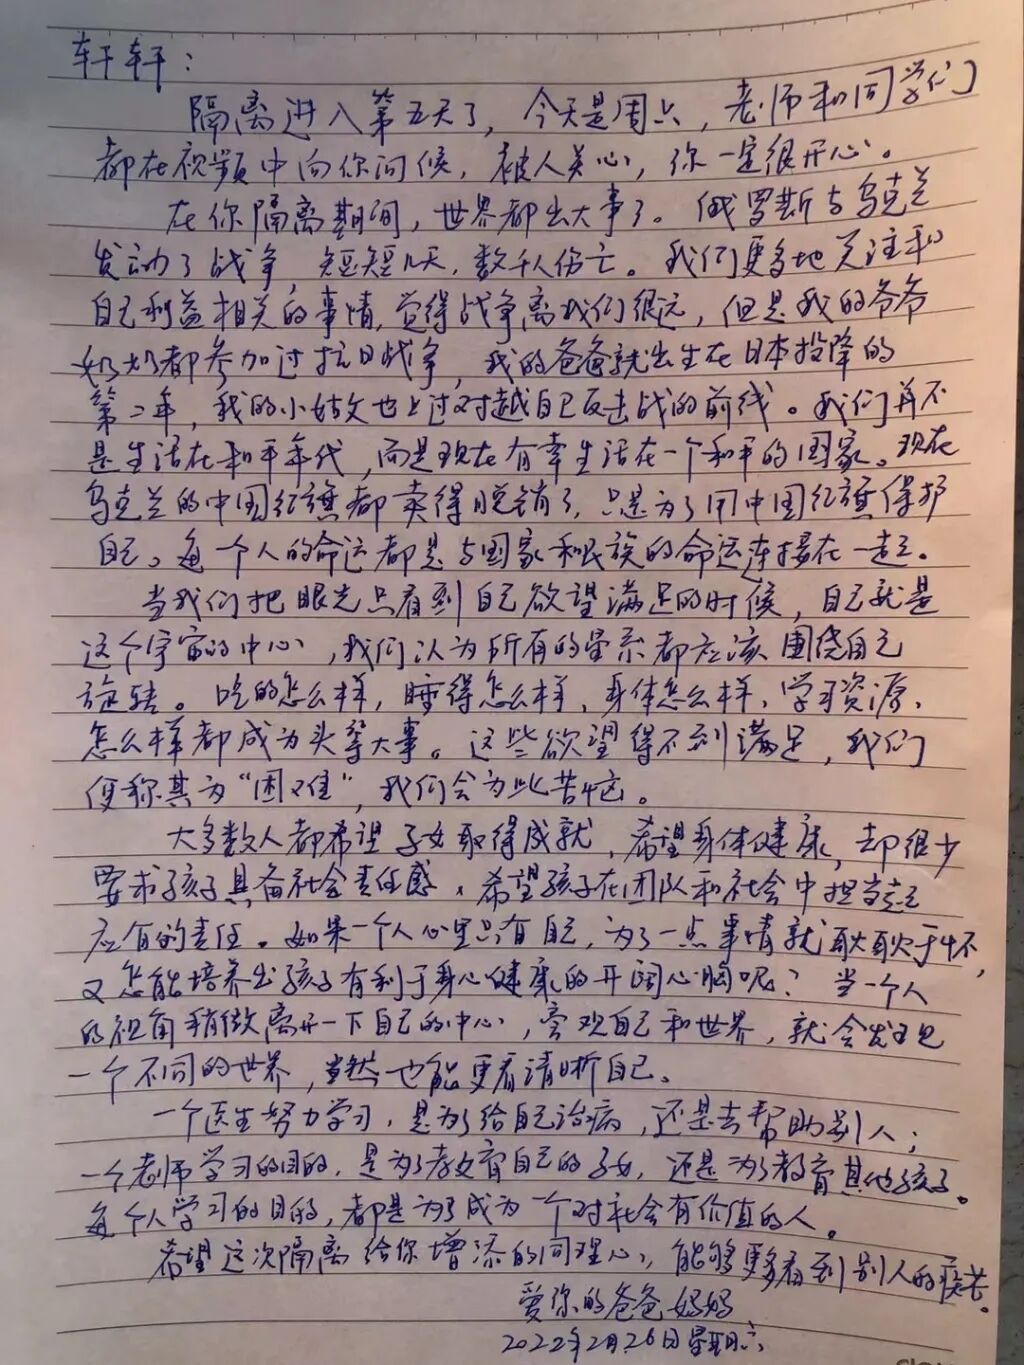 轩轩：
隔离进入第五天了，今天是周六，老师和同学们
都在视频中向你问候，被人关心，你一定很开心。
在你隔离期间，世界都出大事了。俄罗斯与乌克兰
发动了战争，短短几天，数千人伤亡。我们更多地关注和
自己利益相关的事情，觉得战争离我们很远，但是我的爷爷
奶奶都参加过抗日战争，我的爸爸就出生在日本投降的
第二年，我的小姑父也上过对越自卫反击战的前线。我们再不
是生活在和平年代，而是现在有幸生活在一个和平的国家。现在
乌克兰的中国红旗都卖得脱销了，只是为了用中国红旗保护
自己。每一个人的命运都是与国家和民族的命运连接在一起。
当我们把眼光只看到自己欲望满足的时候，自己就是
这个宇宙的中心，我们认为所有的星系都应该围绕自己
旋转。吃的怎么样，睡得怎么样，身体怎么样，学习资源，
怎么样都成为头等大事。这些欲望得不到满足，我们
便称其为“困难”，我们会为此苦恼。
大多数人都希望子女取得成就，希望身体健康，却很少
要求孩子具备社会责任感，希望孩子在团队和社会中担当起
应有的责任。如果一个人心里只有自己，为了一点事情就耿耿于怀，
又怎能培养出孩子有利于身心健康的开阔心胸呢？当一个人
的视角稍微离开一下自己的中心，旁观自己和世界，就会发现
一个不同的世界，当然也能更看清晰自己。
一个医生努力学习，是为了给自己治病，还是去帮助别人；
一个老师学习的目的，是为了教育自己的子女，还是为了教育其他孩子。
每个人学习的目的，都是为了成为一个对社会有价值的人。
希望这次隔离给你增添的同理心，能够更多看到别人的疾苦。
爱你的爸爸妈妈
2022年2月26日星期六